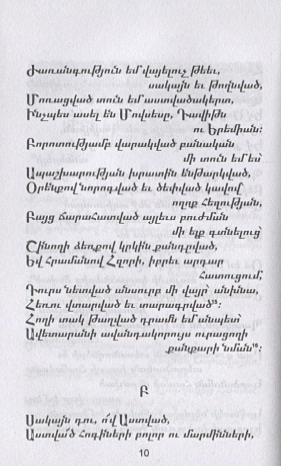 Ժառանգություն եմ վայելուչ թեեւ,
սակայն եւ թողնված,
Մոռացված տուն եմ աստվածակերտ,
Ինչպես ասել են Մովսեսը, Դավիթն
ու Երեմիան:
Բորոտությամբ վարակված բանական
մի տուն եմ ես՝
Ապաշխարության խրատին ենթարկված,
Օրենքով նորոգված եւ ծեփված կավով
ողոք հեղության,
Բայց ճարահատված այլեւս բուժման
մի ելք գտնելուց՝
Շինողի ձեռքով կրկին քանդված,
Եվ Հրամանով Հզորի, իբրեւ արդար
հատուցում,
Դուրս նետված անսուրբ մի վայր՝ անխնա,
Հեռու վտարված եւ տարագրված¹⁵:
Հողի տակ թաղված դրամն եմ անպետ՝
Ավետարանի ավանդակորույս ուրացողի
քանքարի նման¹⁶:
Բ
Սակայն դու, ո՛վ Աստված,
Աստվա՛ծ հոգիների բոլոր ու մարմինների,
10